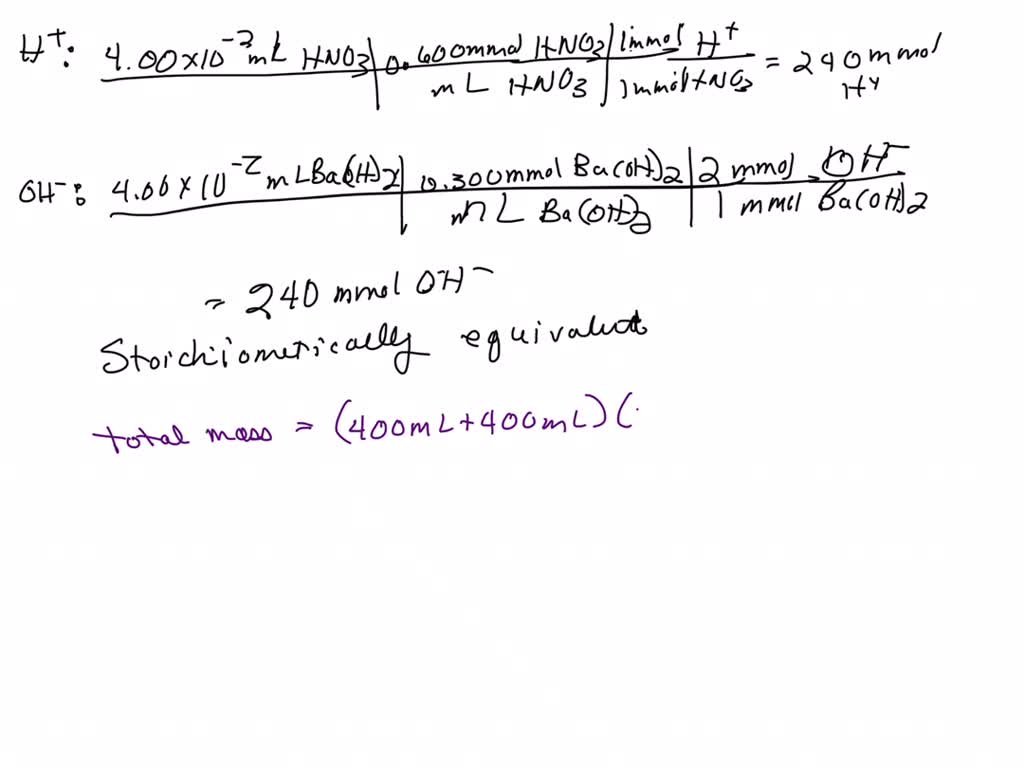 H⁺: 4.00×10⁻² mL HNO₃ | 0.600 mmol HNO₃ / mL HNO₃ | 1 mmol H⁺ / 1 mmol HNO₃ = 240 mmol H⁺
OH⁻: 4.00×10⁻² mL Ba(OH)₂ | 0.300 mmol Ba(OH)₂ / mL Ba(OH)₂ | 2 mmol OH⁻ / 1 mmol Ba(OH)₂
= 240 mmol OH⁻
Stoichiometrically equivalent
total mass = (400mL+400mL)(